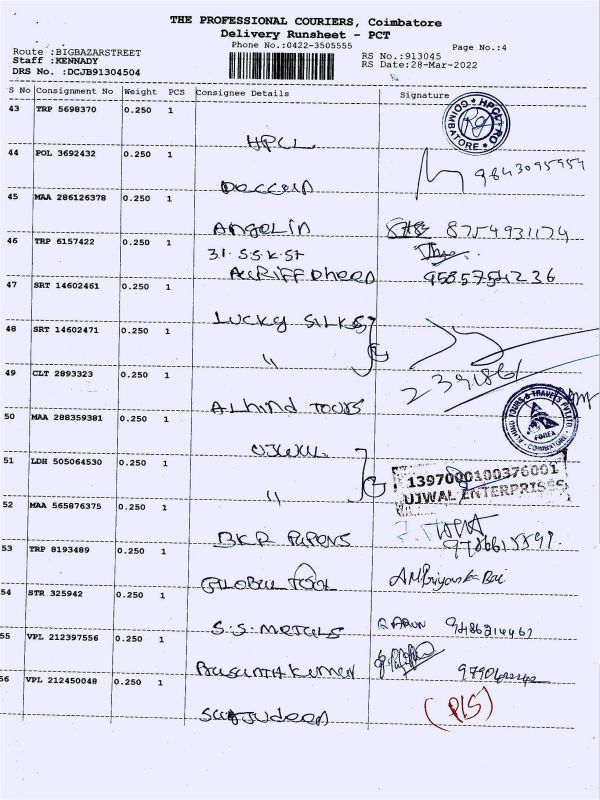 THE PROFESSIONAL COURIERS, Coimbatore
Delivery Runsheet - PCT
Phone No.:0422-3505555
Page No.:4
Route :BIGBAZARSTREET
Staff :KENNADY
DRS No. :DCJB91304504
RS No.:913045
RS Date:28-Mar-2022
S No Consignment No Weight PCS Consignee Details Signature
43 TRP 5698370 0.250 1
HPCL
COIMBATORE
44 POL 3692432 0.250 1
Deccan 9843095954
45 MAA 286126378 0.250 1
Angelin 8754931174
46 TRP 6157422 0.250 1
31.S.S.K.St
9585754236
47 SRT 14602461 0.250 1
Lucky Silks
48 SRT 14602471 0.250 1
"
2391861
49 CLT 2893323 0.250 1
Alhind Tours
ALHIND TOURS & TRAVELS PVT LTD
FOREX
COIMBATORE
50 MAA 288359381 0.250 1
UJWAL
51 LDH 505064530 0.250 1
"
1397000100376001
UJWAL ENTERPRISES
52 MAA 565876375 0.250 1
BKR Papers
53 TRP 8193489 0.250 1
Global Tool
54 STR 325942 0.250 1
S.S. Metals
55 VPL 212397556 0.250 1
Prasanth Kumar
56 VPL 212450048 0.250 1
(P/S)